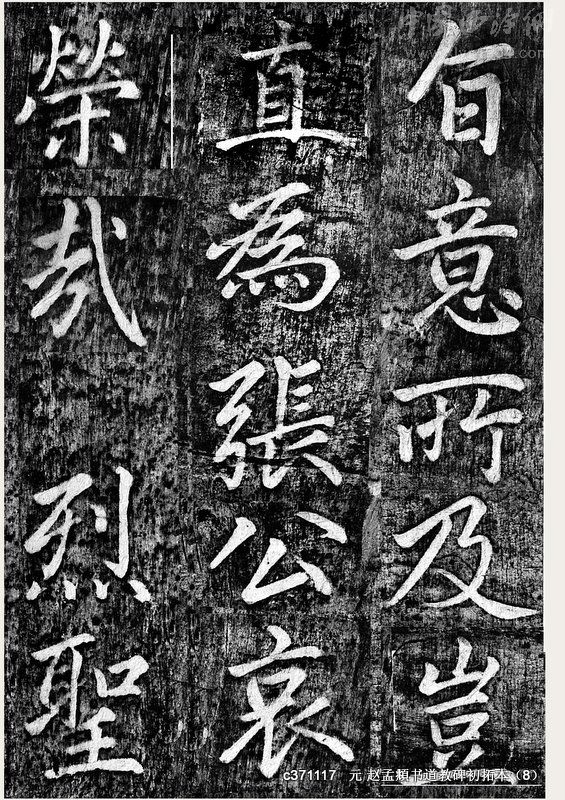 旨意所及豈
直為張公哀
榮哉 烈聖
c371117 元 赵孟頫书道教碑初拓本（8）